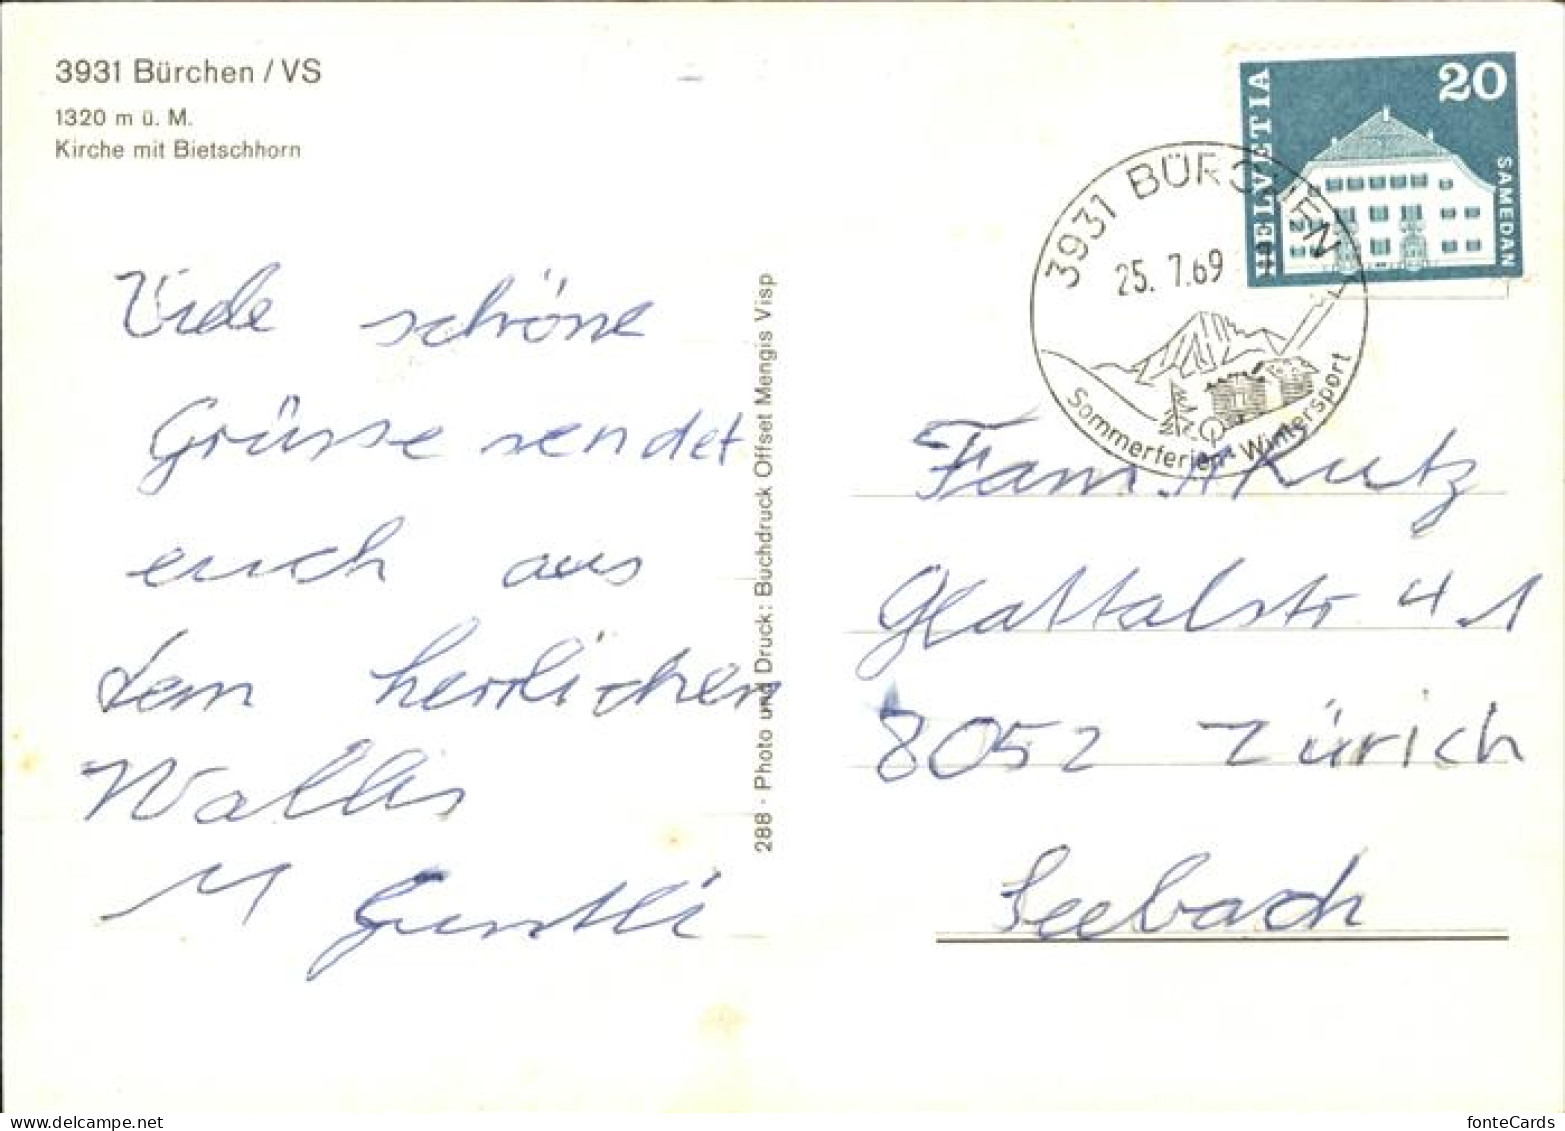 3931 Bürchen / VS
1320 m ü. M.
Kirche mit Bietschhorn
Viele schöne
Grüsse sendet
euch aus
dem herrlichen
Wallis
288 - Photo und Druck: Buchdruck Offset Mengis Visp
HELVETIA
20
SAMEDAN
3931 BÜRCHEN
25. 7.69
Sommerferien Wintersport
Fam. Kutz
Glattalstr 41
8052 Zürich
Seebach
fonteCards
delcampe.net